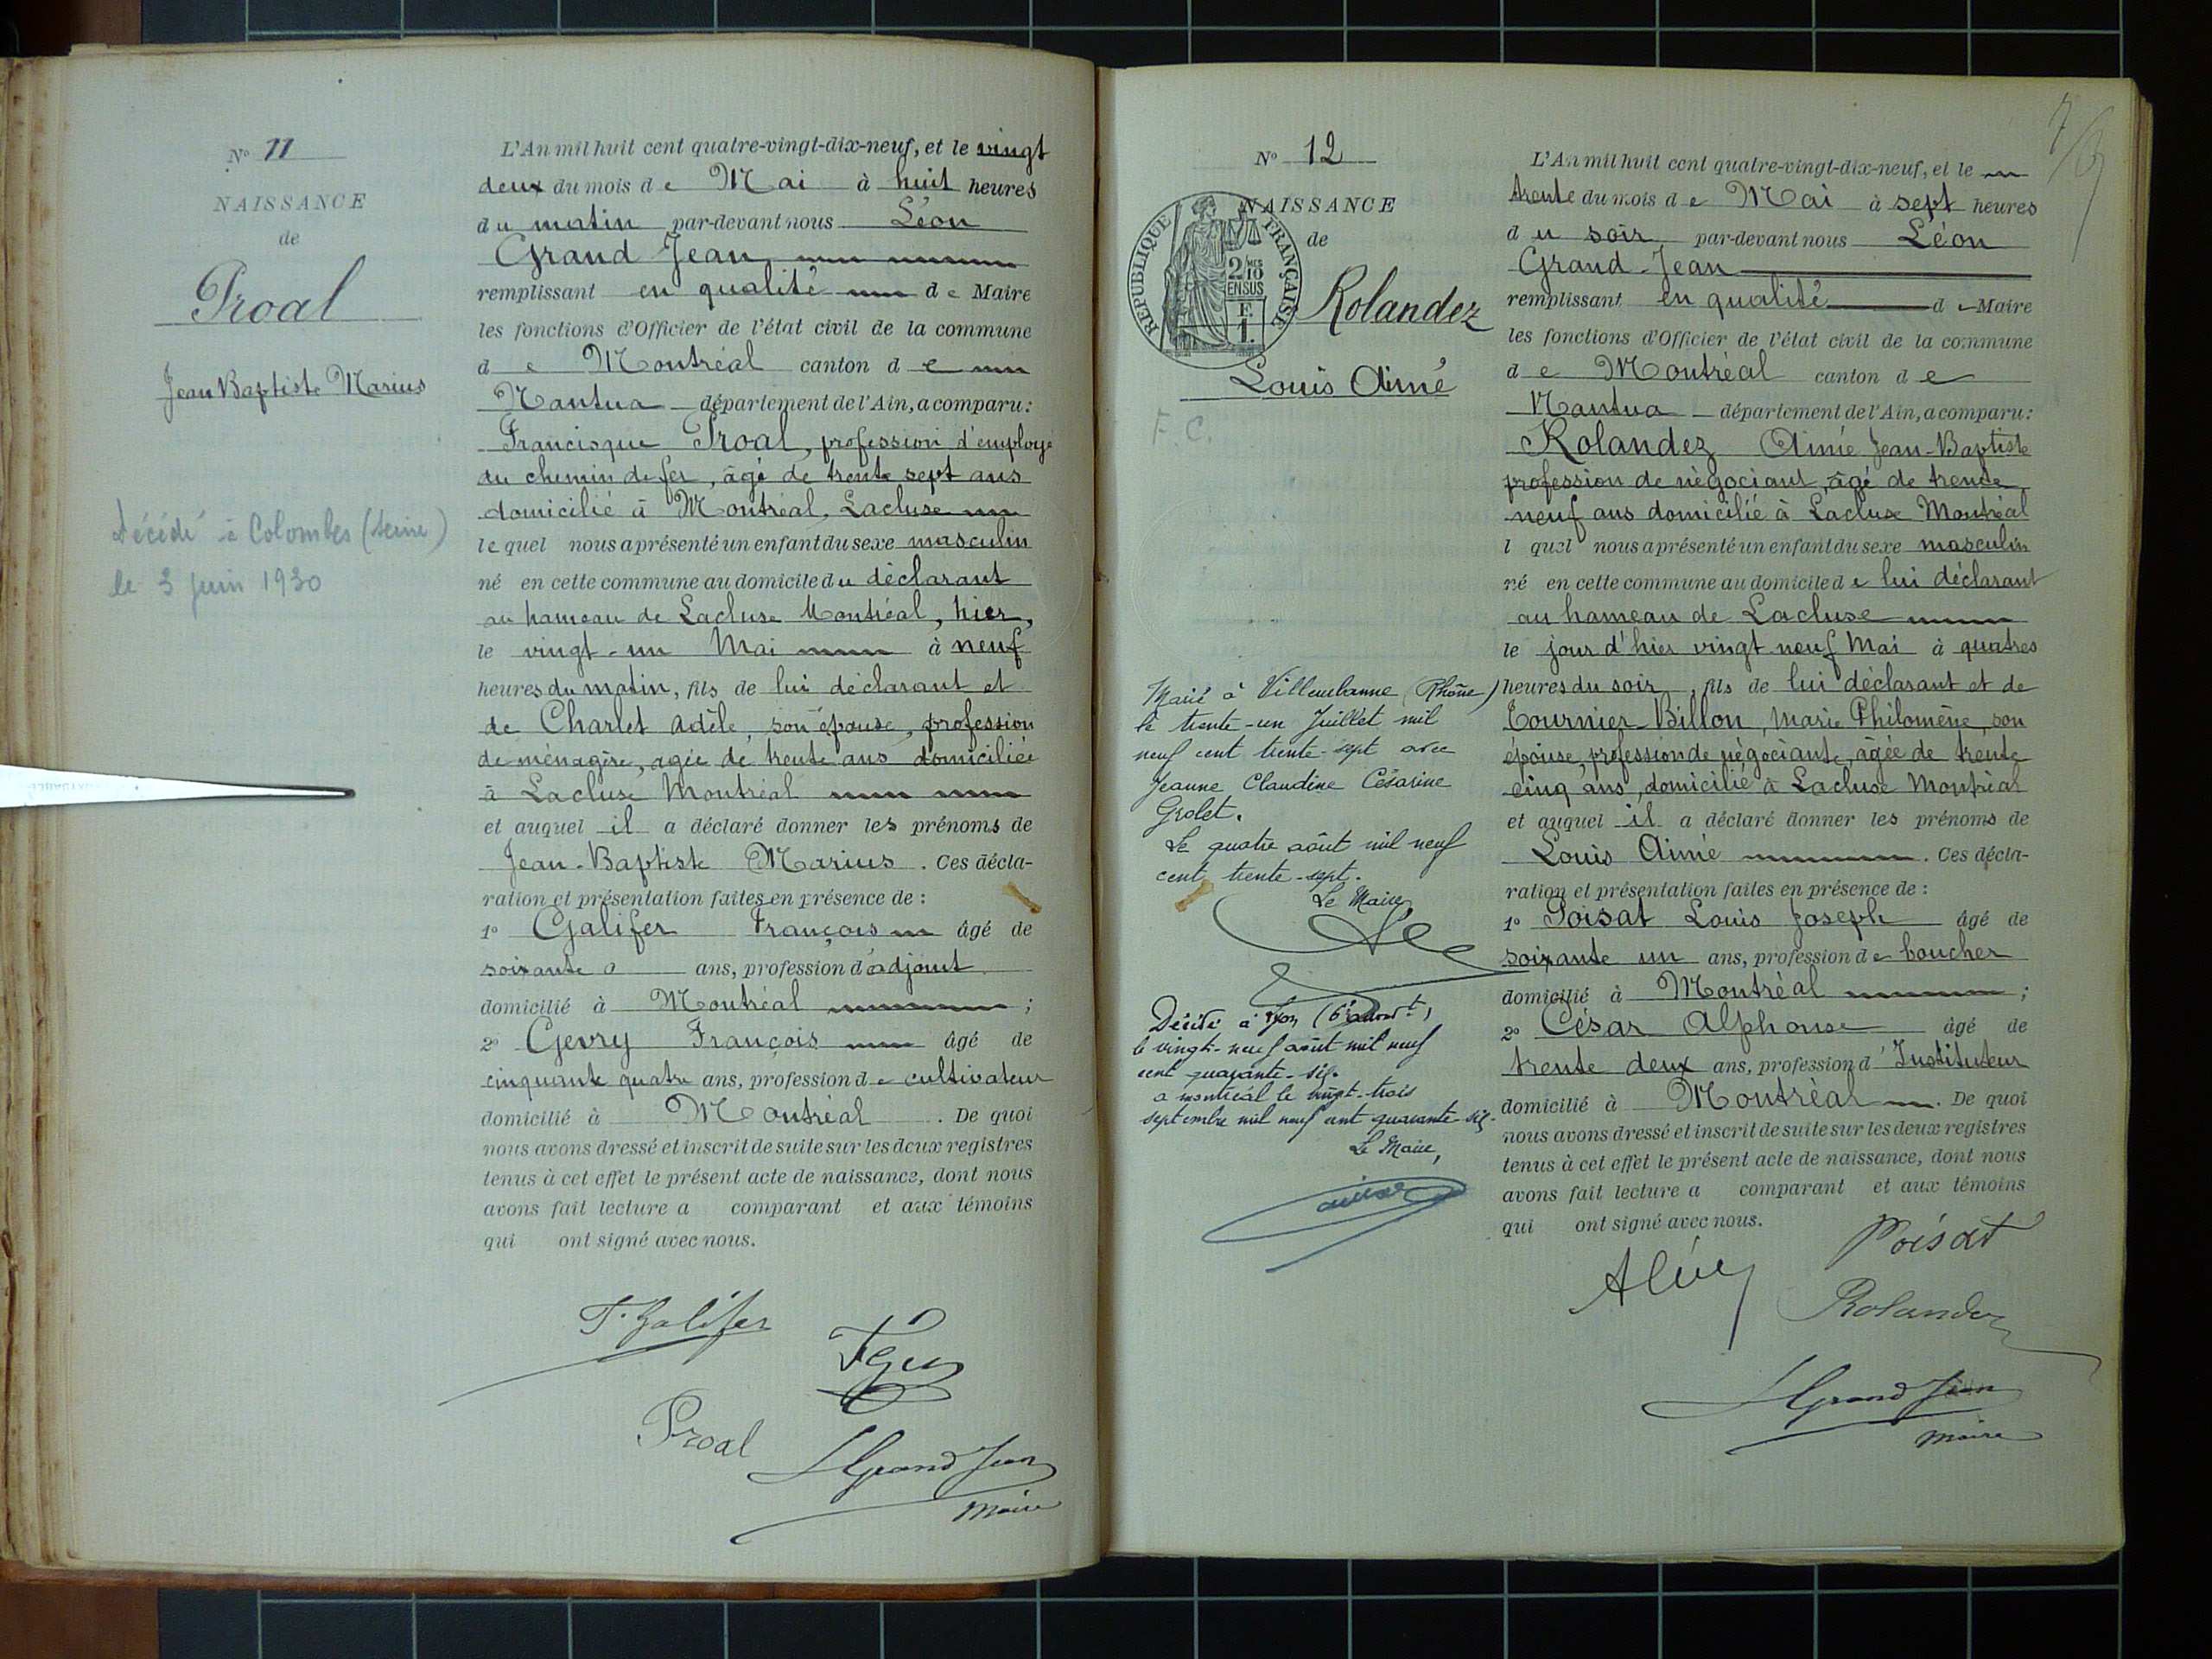 N° 11
NAISSANCE
de
Proal
Jean Baptiste Marius
Décédé à Colombes (Seine)
le 3 juin 1930
L'An mil huit cent quatre-vingt-dix-neuf, et le vingt
deux du mois de Mai à huit heures
du matin par-devant nous Léon
Grand Jean
remplissant en qualité de Maire
les fonctions d'Officier de l'état civil de la commune
de Montréal canton de
Nantua département de l'Ain, a comparu :
Francisque Proal, profession d'employé
du chemin de fer, âgé de trente sept ans
domicilié à Montréal, Lacluse
lequel nous a présenté un enfant du sexe masculin
né en cette commune au domicile du déclarant
au hameau de Lacluse Montréal, hier,
le vingt-un Mai à neuf
heures du matin, fils de lui déclarant et
de Charlet Adèle, son épouse, profession
de ménagère, agée de trente ans domiciliée
à Lacluse Montréal
et auquel il a déclaré donner les prénoms de
Jean-Baptiste Marius. Ces décla-
ration et présentation faites en présence de :
1° Galifer François âgé de
soixante ans, profession d'adjoint
domicilié à Montréal ;
2° Gevry François âgé de
cinquante quatre ans, profession de cultivateur
domicilié à Montréal. De quoi
nous avons dressé et inscrit de suite sur les deux registres
tenus à cet effet le présent acte de naissance, dont nous
avons fait lecture a comparant et aux témoins
qui ont signé avec nous.
F. Galifer
Proal
LGrand Jean
Maire
N° 12
NAISSANCE
de
REPUBLIQUE FRANÇAISE
2/10 MES
EN SUS
F.
1.
Rolandez
Louis Aimé
F. C.
Marié à Villeurbanne (Rhône)
le trente-un Juillet mil
neuf cent trente-sept avec
Jeanne Claudine Césarine
Grolet.
Le quatre août mil neuf
cent trente-sept.
Le Maire
Décédé à Lyon (6e arrondt)
le vingt-neuf août mil neuf
cent quarante-six.
a montréal le vingt-trois
septembre mil neuf cent quarante six.
Le Maire,
L'An mil huit cent quatre-vingt-dix-neuf, et le
trente du mois de Mai à sept heures
du soir, par-devant nous Léon
Grand-Jean
remplissant en qualité de Maire
les fonctions d'Officier de l'état civil de la commune
de Montréal canton de
Nantua département de l'Ain, a comparu :
Rolandez Aimé Jean-Baptiste
profession de négociant, âgé de trente
neuf ans domicilié à Lacluse Montréal
l quel nous a présenté un enfant du sexe masculin
né en cette commune au domicile de lui déclarant
au hameau de Lacluse
le jour d'hier vingt neuf Mai à quatres
heures du soir, fils de lui déclarant et de
Tournier-Billon, Marie Philomène, son
épouse, profession de négociante, âgée de trente
cinq ans, domicilié à Lacluse Montréal
et auquel il a déclaré donner les prénoms de
Louis Aimé. Ces décla-
ration et présentation faites en présence de :
1° Poisat Louis Joseph âgé de
soixante un ans, profession de boucher
domicilié à Montréal ;
2° César Alphonse âgé de
trente deux ans, profession d'Instituteur
domicilié à Montréal. De quoi
nous avons dressé et inscrit de suite sur les deux registres
tenus à cet effet le présent acte de naissance, dont nous
avons fait lecture a comparant et aux témoins
qui ont signé avec nous.
Poisat
Rolandez
LGrand Jean
Maire